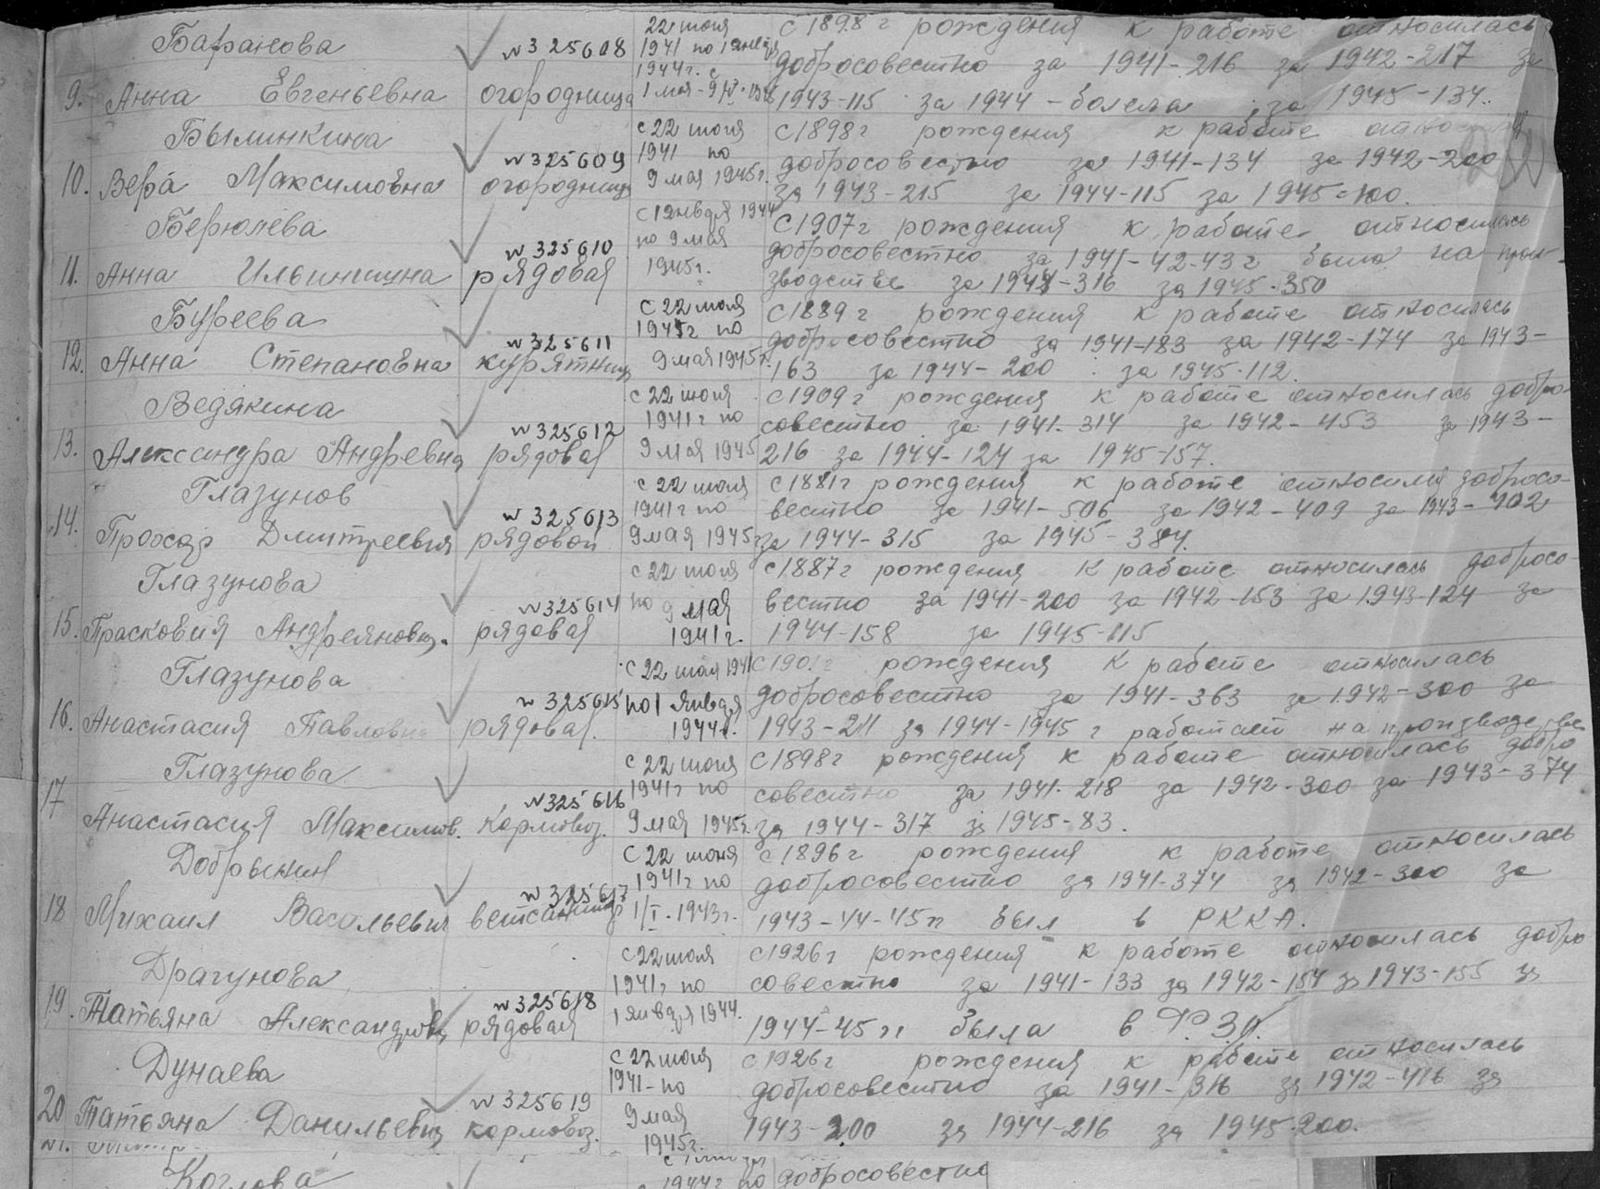 Баранова
№325608
22 июня 1941 по 1 января 1944г. с 1 мая - 9/V-1945
с 1898 г рождения к работе относилась
добросовестно за 1941-216 за 1942-217 за
9. Анна Евгеньевна огородница
1943-115 за 1944-болела за 1945-134.
Былинкина
№325609
с 22 июня 1941 по 9 мая 1945г.
с 1898г рождения к работе
добросовестно за 1941-134 за 1942-200
10. Вера Максимовна огородница
за 1943-215 за 1944-115 за 1945-100.
Берюлева
№325610
с 1 января 1944 по 9 мая 1945г.
с 1907г рождения к работе относилась
добросовестно за 1941-42-43г была на прои-
11. Анна Ильинишна рядовая
зводстве за 1944-316 за 1945-350
Буреева
№325611
с 22 июня по 9 мая 1945г.
с 1889г рождения к работе относилась
добросовестно за 1941-183 за 1942-174 за 1943-
12. Анна Степановна курятниц
163 за 1944-200 за 1945-112.
Ведякина
№325612
с 22 июня 1941г по 9 мая 1945
с 1909г рождения к работе относилась добро-
совестно за 1941-314 за 1942-453 за 1943-
13. Александра Андревна рядовая
216 за 1944-124 за 1945-157.
Глазунов
№325613
с 22 июня 1941г по 9 мая 1945г
с 1881г рождения к работе относился добросо-
вестно за 1941-506 за 1942-409 за 1943-402
14. Прохор Дмитреевич рядовой
за 1944-315 за 1945-384.
Глазунова
№325614
с 22 июня по 9 мая 1941г.
с 1887г рождения к работе относилась добросо-
вестно за 1941-200 за 1942-153 за 1943-124 за
15. Прасковия Андреяновна. рядовая
1944-158 за 1945-115
Глазунова
№325615
с 22 июня 1941 по 1 января 1944г.
рождения к работе относилась
добросовестно за 1941-363 за 1942-300 за
16. Анастасия Павловна рядовая.
1943-211 за 1944-1945 г работает на производстве
Глазунова
№325616
с 22 июня 1941г по 9 мая 1945г.
с 1898г рождения к работе относилась добро
совестно за 1941-218 за 1942-300 за 1943-374
17 Анастасия Максимов. кормовоз.
за 1944-317 за 1945-83.
Добрынин
№325617
с 22 июня 1941г по 1/I-1943г.
с 1896г рождения к работе относилась
добросовестно за 1941-374 за 1942-300 за
18 Михаил Васольевич ветсанитар
1943-44-45гг был в РККА.
Драгунова
№325618
с 22 июня 1941г по 1 января 1944.
с 1926г рождения к работе относилась добро
совестно за 1941-133 за 1942-154 за 1943-155 за
19. Татьяна Александровн рядовая
1944-45гг была в ФЗО.
Дунаева
№325619
с 22 июня 1941-по 9 мая 1945г.
с 1926г рождения к работе относилась
добросовестно за 1941-316 за 1942-416 за
20 Татьяна Данильевна кормовоз.
1943-200 за 1944-216 за 1945-200.
Козлова
1944г по
добросовестно